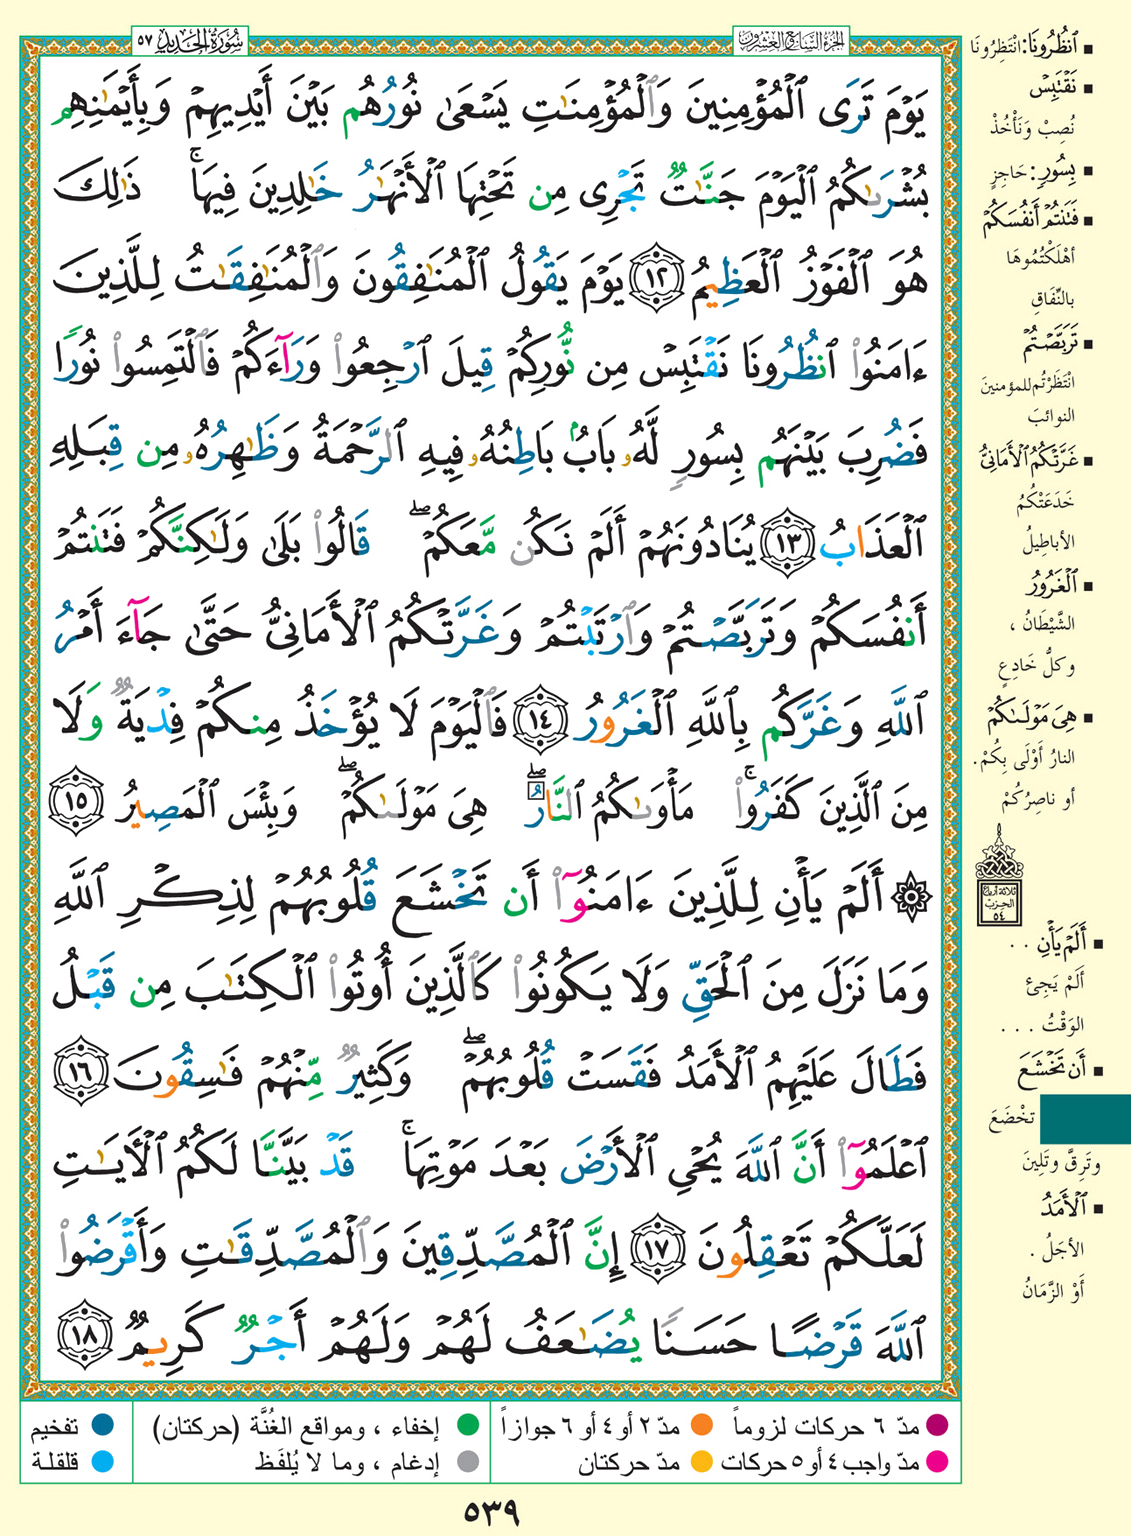 الجزء السابع والعشرون
سورة الحديد ٥٧
يَوْمَ تَرَى ٱلْمُؤْمِنِينَ وَٱلْمُؤْمِنَٰتِ يَسْعَىٰ نُورُهُم بَيْنَ أَيْدِيهِمْ وَبِأَيْمَٰنِهِم
بُشْرَىٰكُمُ ٱلْيَوْمَ جَنَّٰتٌ تَجْرِى مِن تَحْتِهَا ٱلْأَنْهَٰرُ خَٰلِدِينَ فِيهَا ۚ ذَٰلِكَ
هُوَ ٱلْفَوْزُ ٱلْعَظِيمُ ١٢ يَوْمَ يَقُولُ ٱلْمُنَٰفِقُونَ وَٱلْمُنَٰفِقَٰتُ لِلَّذِينَ
ءَامَنُوا۟ ٱنظُرُونَا نَقْتَبِسْ مِن نُّورِكُمْ قِيلَ ٱرْجِعُوا۟ وَرَآءَكُمْ فَٱلْتَمِسُوا۟ نُورًا
فَضُرِبَ بَيْنَهُم بِسُورٍ لَّهُۥ بَابٌۢ بَاطِنُهُۥ فِيهِ ٱلرَّحْمَةُ وَظَٰهِرُهُۥ مِن قِبَلِهِ
ٱلْعَذَابُ ١٣ يُنَادُونَهُمْ أَلَمْ نَكُن مَّعَكُمْ ۖ قَالُوا۟ بَلَىٰ وَلَٰكِنَّكُمْ فَتَنتُمْ
أَنفُسَكُمْ وَتَرَبَّصْتُمْ وَٱرْتَبْتُمْ وَغَرَّتْكُمُ ٱلْأَمَانِىُّ حَتَّىٰ جَآءَ أَمْرُ
ٱللَّهِ وَغَرَّكُم بِٱللَّهِ ٱلْغَرُورُ ١٤ فَٱلْيَوْمَ لَا يُؤْخَذُ مِنكُمْ فِدْيَةٌ وَلَا
مِنَ ٱلَّذِينَ كَفَرُوا۟ ۚ مَأْوَىٰكُمُ ٱلنَّارُ ۖ هِىَ مَوْلَىٰكُمْ ۖ وَبِئْسَ ٱلْمَصِيرُ ١٥
۞ أَلَمْ يَأْنِ لِلَّذِينَ ءَامَنُوٓا۟ أَن تَخْشَعَ قُلُوبُهُمْ لِذِكْرِ ٱللَّهِ
وَمَا نَزَلَ مِنَ ٱلْحَقِّ وَلَا يَكُونُوا۟ كَٱلَّذِينَ أُوتُوا۟ ٱلْكِتَٰبَ مِن قَبْلُ
فَطَالَ عَلَيْهِمُ ٱلْأَمَدُ فَقَسَتْ قُلُوبُهُمْ ۖ وَكَثِيرٌ مِّنْهُمْ فَٰسِقُونَ ١٦
ٱعْلَمُوٓا۟ أَنَّ ٱللَّهَ يُحْىِ ٱلْأَرْضَ بَعْدَ مَوْتِهَا ۚ قَدْ بَيَّنَّا لَكُمُ ٱلْءَايَٰتِ
لَعَلَّكُمْ تَعْقِلُونَ ١٧ إِنَّ ٱلْمُصَّدِّقِينَ وَٱلْمُصَّدِّقَٰتِ وَأَقْرَضُوا۟
ٱللَّهَ قَرْضًا حَسَنًا يُضَٰعَفُ لَهُمْ وَلَهُمْ أَجْرٌ كَرِيمٌ ١٨
■ ٱنظُرُونَا: انْتَظِرُونَا
■ نَقْتَبِسْ
نُصِبْ وَنَأْخُذْ
■ بِسُورٍ: حَاجِزٍ
■ فَتَنتُمْ أَنفُسَكُمْ
أهْلَكْتُمُوهَا
بالنِّفَاقِ
■ تَرَبَّصْتُمْ
انْتَظَرْتُم للمؤمنينَ
النوائبَ
■ غَرَّتْكُمُ ٱلْأَمَانِىُّ
خَدَعَتْكُمُ
الأباطِيلُ
■ ٱلْغَرُورُ
الشَّيْطَانُ ،
وكلُّ خَادِعٍ
■ هِىَ مَوْلَىٰكُمْ
النارُ أَوْلَى بِكُمْ .
أو ناصِرُكُمْ
ثلاثة أرباع
الحزب
٥٤
■ أَلَمْ يَأْنِ . .
أَلَمْ يَجِئ
الوَقْتُ . . .
■ أَن تَخْشَعَ
تخْضَعَ
وتَرِقَّ وتَلِينَ
■ ٱلْأَمَدُ
الأجَلُ .
أوْ الزَّمَانُ
مدّ ٦ حركات لزوماً
مدّ ٢ أو ٤ أو ٦ جوازاً
إخفاء ، ومواقع الغُنَّة (حركتان)
تفخيم
مدّ واجب ٤ أو ٥ حركات
مدّ حركتان
إدغام ، وما لا يُلفَظ
قلقلة
٥٣٩